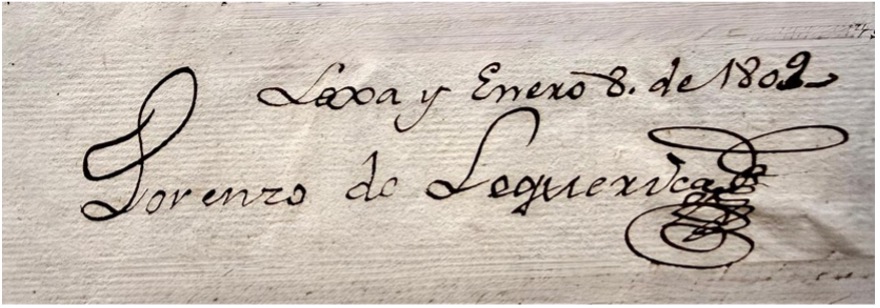 Loxa y Enero 8. de 1802
Lorenzo de Lequerica